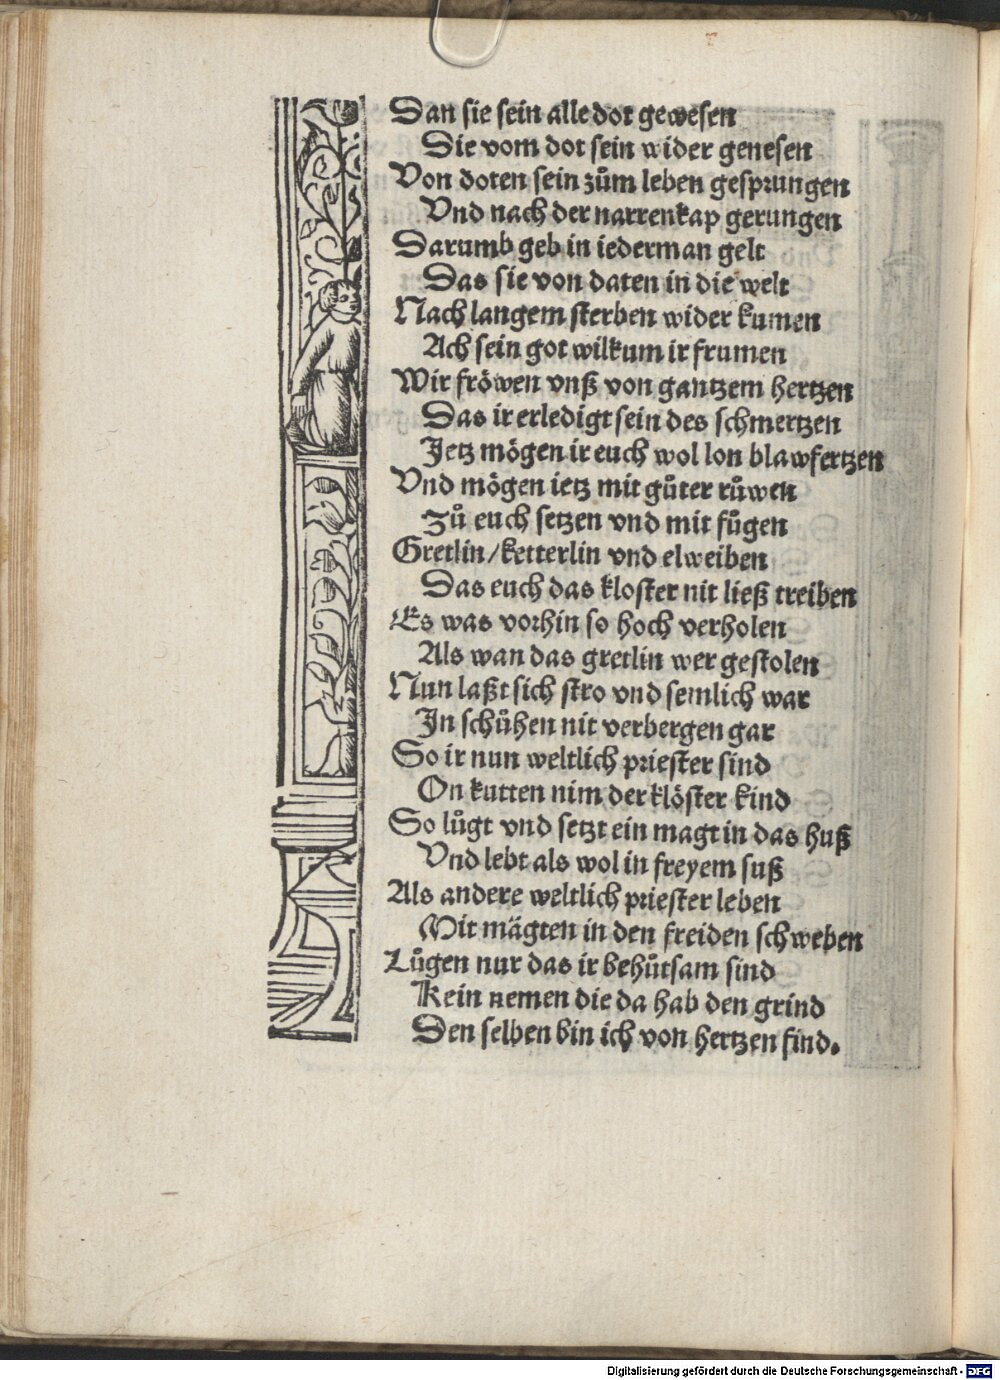 Dan sie sein alle dot gewesen
Die vom dot sein wider genesen
Von doten sein zům leben gesprungen
Vnd nach der narrenkap gerungen
Darumb geb in iederman gelt
Das sie von daten in die welt
Nach langem sterben wider kumen
Ach sein got wilkum ir frumen
Wir fröwen vnß von gantzem hertzen
Das ir erledigt sein des schmertzen
Jetz mögen ir euch wol lon blawfertzen
Vnd mögen ietz mit gůter růwen
Zů euch setzen vnd mit fůgen
Gretlin/ketterlin vnd elweiben
Das euch das kloster nit ließ treiben
Es was vorhin so hoch verholen
Als wan das gretlin wer gestolen
Nun laßt sich stro vnd semlich war
In schůhen nit verbergen gar
So ir nun weltlich priester sind
On kutten nim der klöster kind
So lůgt vnd setzt ein magt in das huß
Vnd lebt als wol in freyem suß
Als andere weltlich priester leben
Mit mägten in den freiden schweben
Lůgen nur das ir behůtsam sind
Kein nemen die da hab den grind
Den selben bin ich von hertzen find.
Digitalisierung gefördert durch die Deutsche Forschungsgemeinschaft - DFG